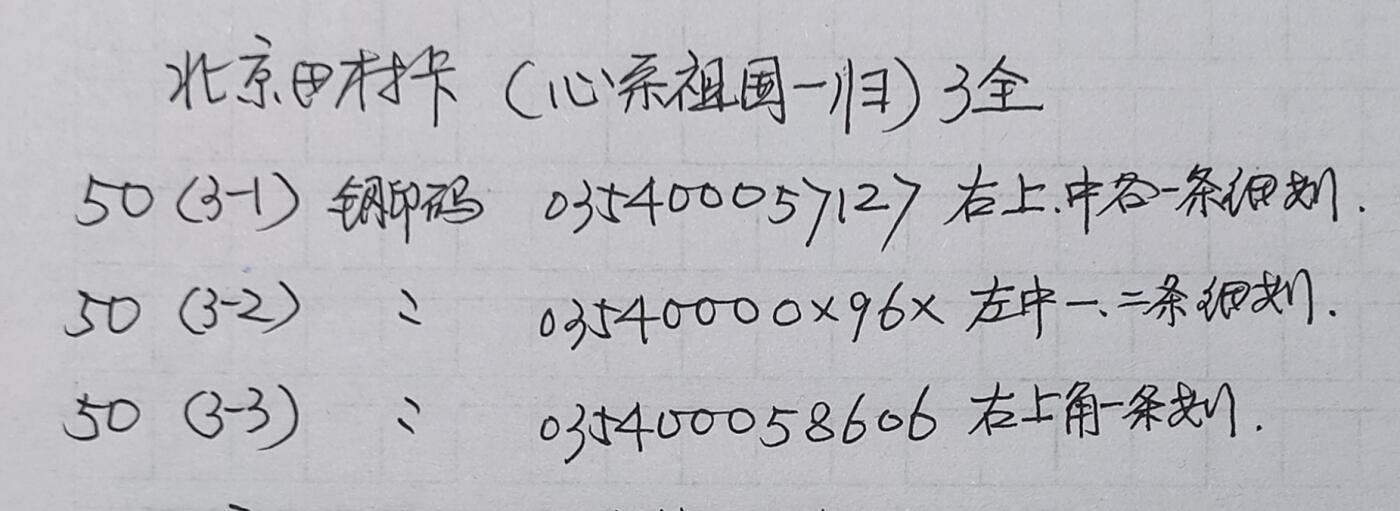 北京田村卡（心系祖国一归）3全
50 (3-1) 钢印码 035400057127 右上.中各一条细划.
50 (3-2) 〃 03540000×96× 左中一.二条细划.
50 (3-3) 〃 035400058606 右上角一条划.